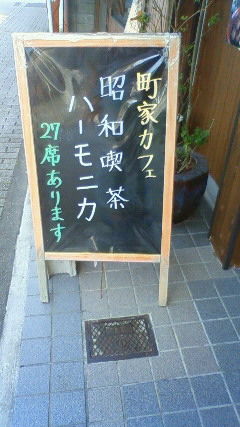 町家カフェ
昭和喫茶
ハーモニカ
27席あります